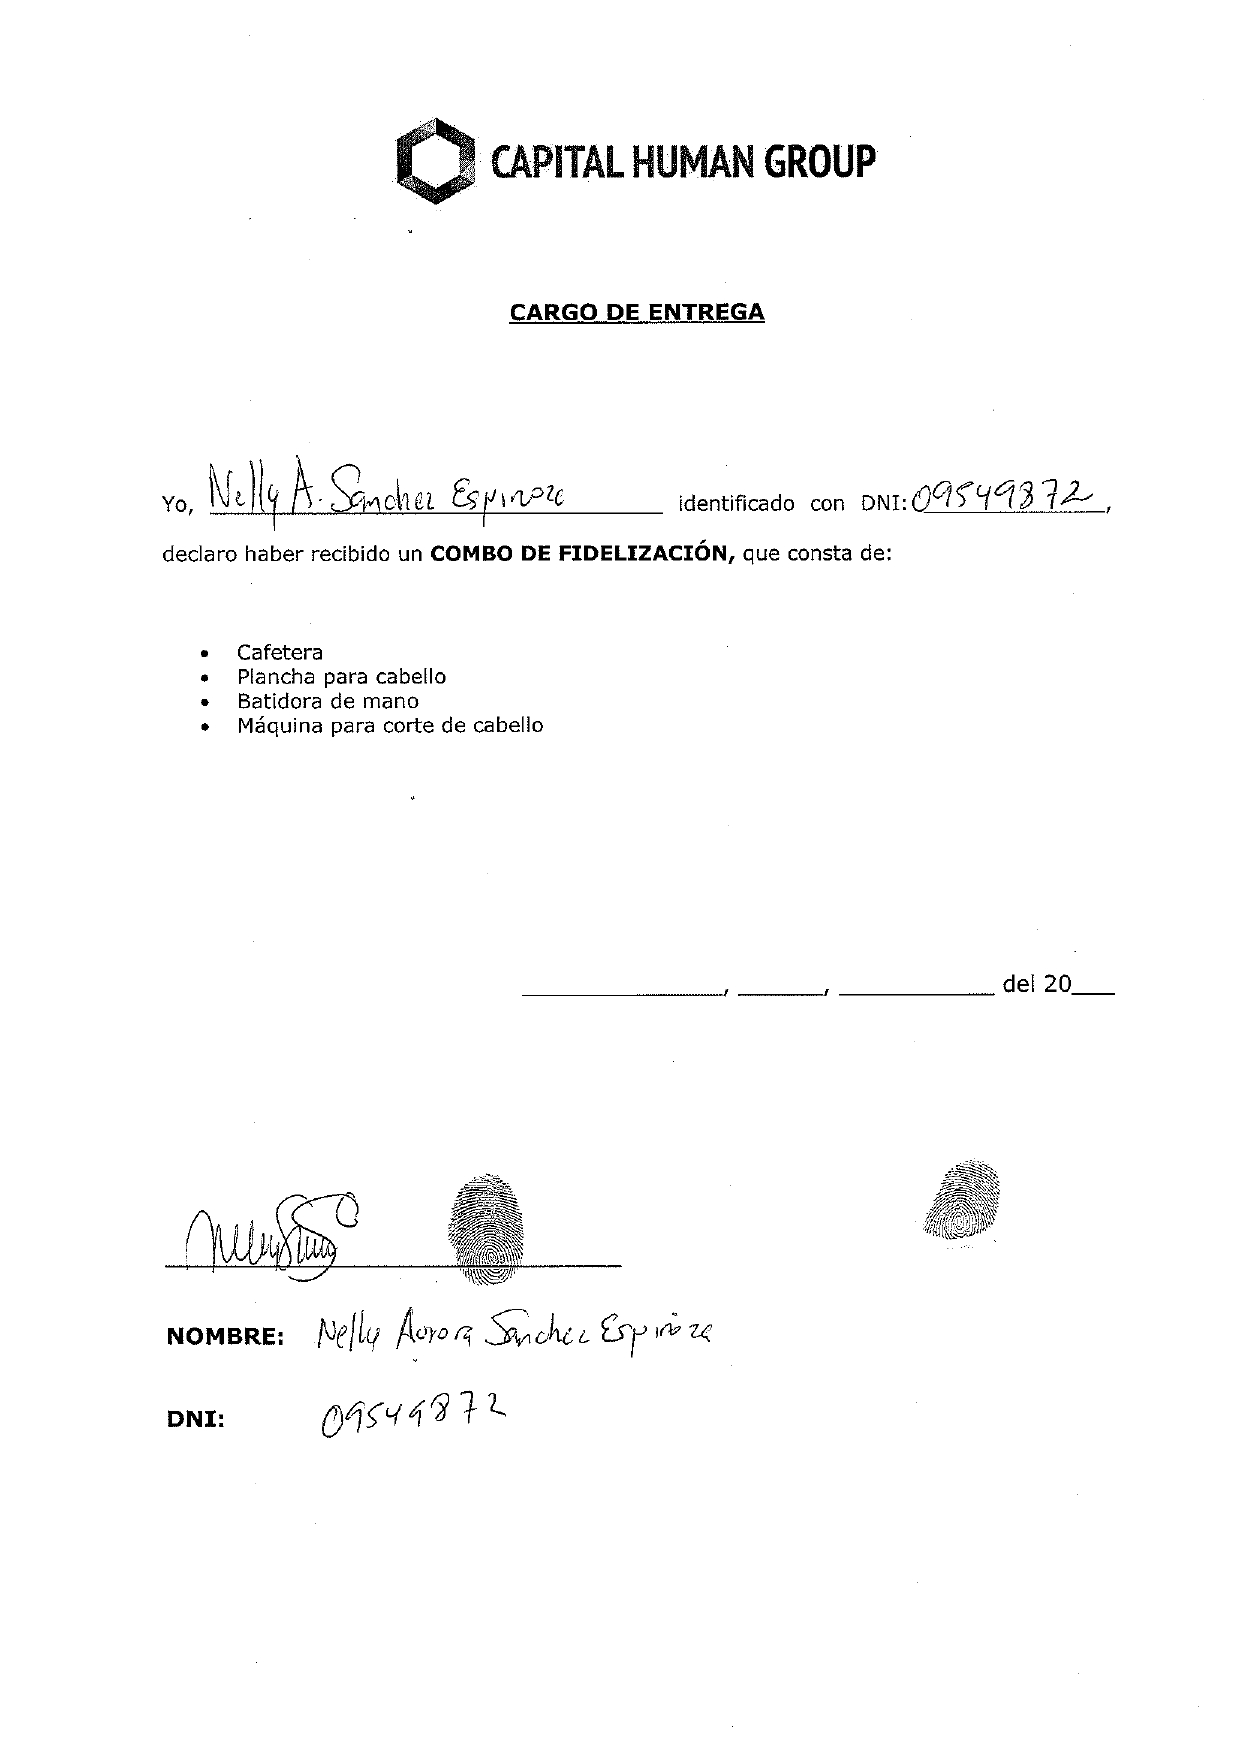 CAPITAL HUMAN GROUP
CARGO DE ENTREGA
Yo, Nelly A. Sanchez Espinoza identificado con DNI: 09549872,
declaro haber recibido un COMBO DE FIDELIZACIÓN, que consta de:
• Cafetera
• Plancha para cabello
• Batidora de mano
• Máquina para corte de cabello
____________, _____, __________ del 20___
NOMBRE: Nelly Aurora Sanchez Espinoza
DNI: 09549872